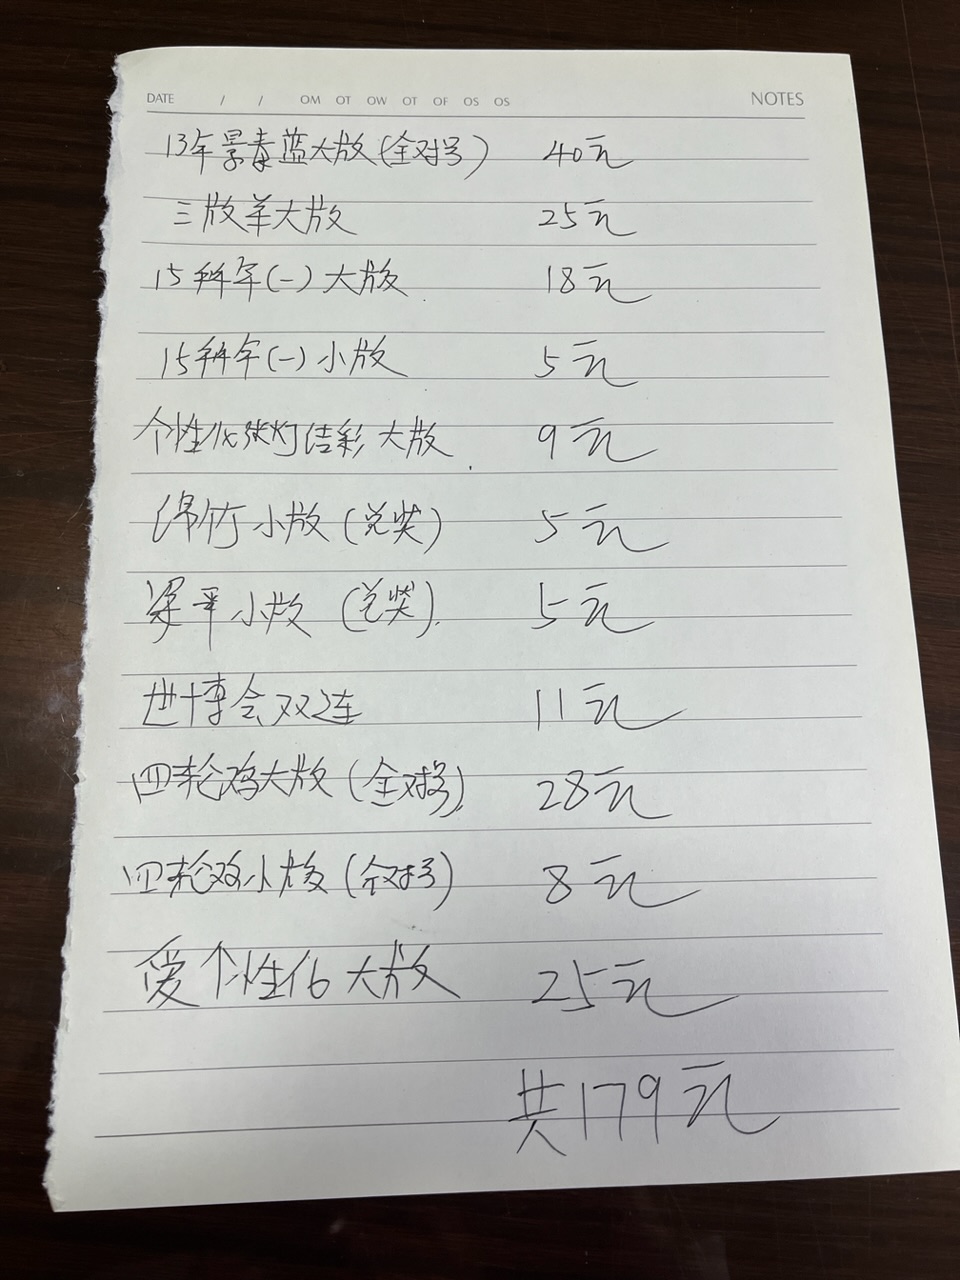 DATE / / OM OT OW OT OF OS OS NOTES
13年景泰蓝大版(全对号) 40元
三版羊大版 25元
15拜年(一)大版 18元
15拜年(一)小版 5元
个性化张灯结彩大版 9元
绵竹小版(兑奖) 5元
梁平小版(兑奖) 5元
世博会双连 11元
四轮鸡大版(全对号) 28元
四轮鸡小版(全对号) 8元
爱个性化大版 25元
共179元